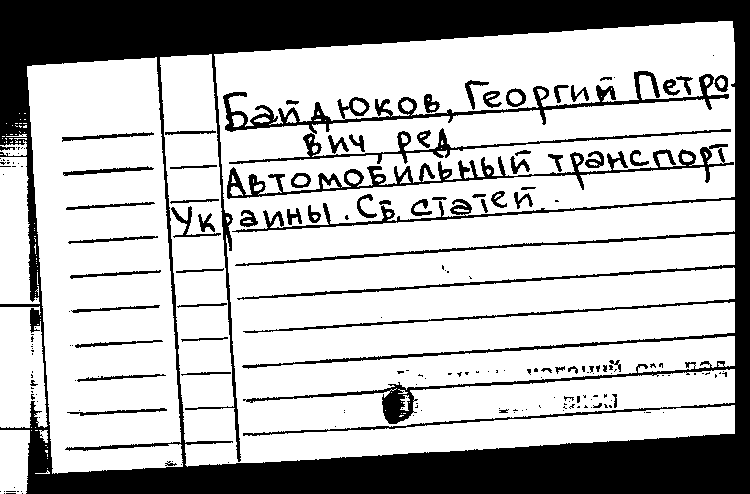 Байдюков, Георгий Петро-
вич, ред.
Автомобильный транспорт
Украины. Сб. статей.
см. под